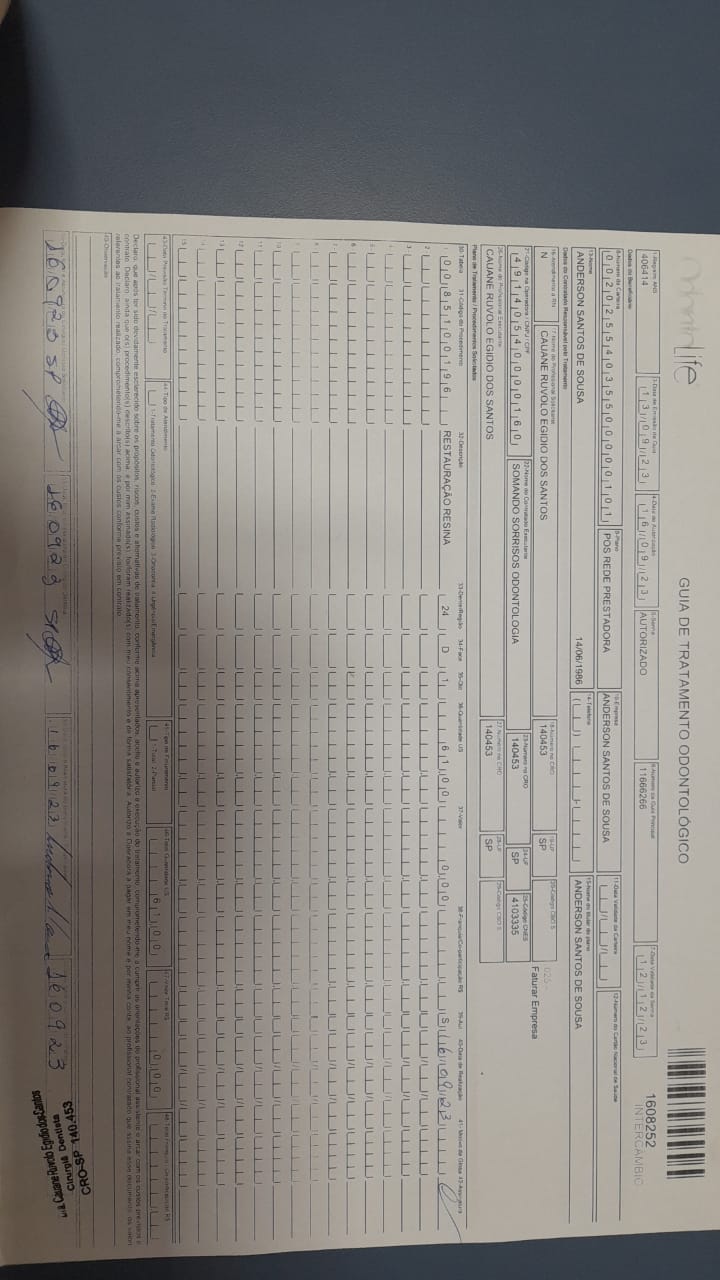 OdontoLife
GUIA DE TRATAMENTO ODONTOLÓGICO
1608252
INTERCAMBIO
1-Registro ANS
406414
3-Data de Emissão da Guia
13/09/23
4-Data de Autorização
16/09/23
5-Senha
AUTORIZADO
6-Número da Guia Principal
11666266
7-Data Validade da Senha
12/12/23
Dados do Beneficiário
8-Número da Carteira
00202554035500000101
9-Plano
POS REDE PRESTADORA
10-Empresa
ANDERSON SANTOS DE SOUSA
11-Data Validade da Carteira
12-Número do Cartão Nacional de Saúde
13-Nome
ANDERSON SANTOS DE SOUSA
14/06/1986
14-Telefone
15-Nome do titular do plano
ANDERSON SANTOS DE SOUSA
Dados do Contratado Responsável pelo Tratamento
16-Atendimento a RN
N
17-Nome do Profissional Solicitante
CAUANE RUVOLO EGIDIO DOS SANTOS
18-Número no CRO
140453
19-UF
SP
20-Código CBO S
025 -
Faturar Empresa
21-Código na Operadora / CNPJ / CPF
49140540000160
22-Nome do Contratado Executante
SOMANDO SORRISOS ODONTOLOGIA
23-Número no CRO
140453
24-UF
SP
25-Código CNES
4103335
26-Nome do Profissional Executante
CAUANE RUVOLO EGIDIO DOS SANTOS
27-Número no CRO
140453
28-UF
SP
29-Código CBO S
Plano de Tratamento / Procedimentos Solicitados
30-Tabela 31-Código do Procedimento 32-Descrição 33-Dente/Região 34-Face 35-Qtd 36-Quantidade US 37-Valor 38-Franquia/Co-participação R$ 39-Aut 40-Data de Realização 41- Motivo da Glosa 42-Assinatura
1 00 85100196 RESTAURAÇÃO RESINA 24 D 1 61,00 0,00 S 16/09/23
2
3
4
5
6
7
8
9
10
11
12
13
14
15
43-Data Prevista Término do Tratamento
44-Tipo de Atendimento
1-Tratamento Odontológico 2-Exame Radiológico 3-Ortodontia 4-Urgência/Emergência
45-Tipo de Faturamento
1-Total 2-Parcial
46-Total Quantidade US
61,00
47-Valor Total R$
0,00
48-Total Franquia / Co-participação R$
Declaro que após ter sido devidamente esclarecido sobre os propósitos, riscos, custos e alternativas de tratamento, conforme acima apresentados, aceito e autorizo a execução do tratamento, comprometendo-me a cumprir as orientações do profissional assistente e arcar com os custos previstos e
contrato. Declaro, ainda que o(s) procedimento(s) descrito(s) acima, e por mim assinado(s), foi/foram realizado(s) com meu consentimento e de forma satisfatória. Autorizo a Operadora a pagar em meu nome e por minha conta, ao profissional contratado que assina esse documento, os valores
referentes ao tratamento realizado, comprometendo-me a arcar com os custos conforme previsto em contrato
49-Observação
160923 SP
160923 SP
160923
160923
CRO-SP 140.453
Cirurgiã Dentista
Dra. Cauane Ruvolo Egidio dos Santos